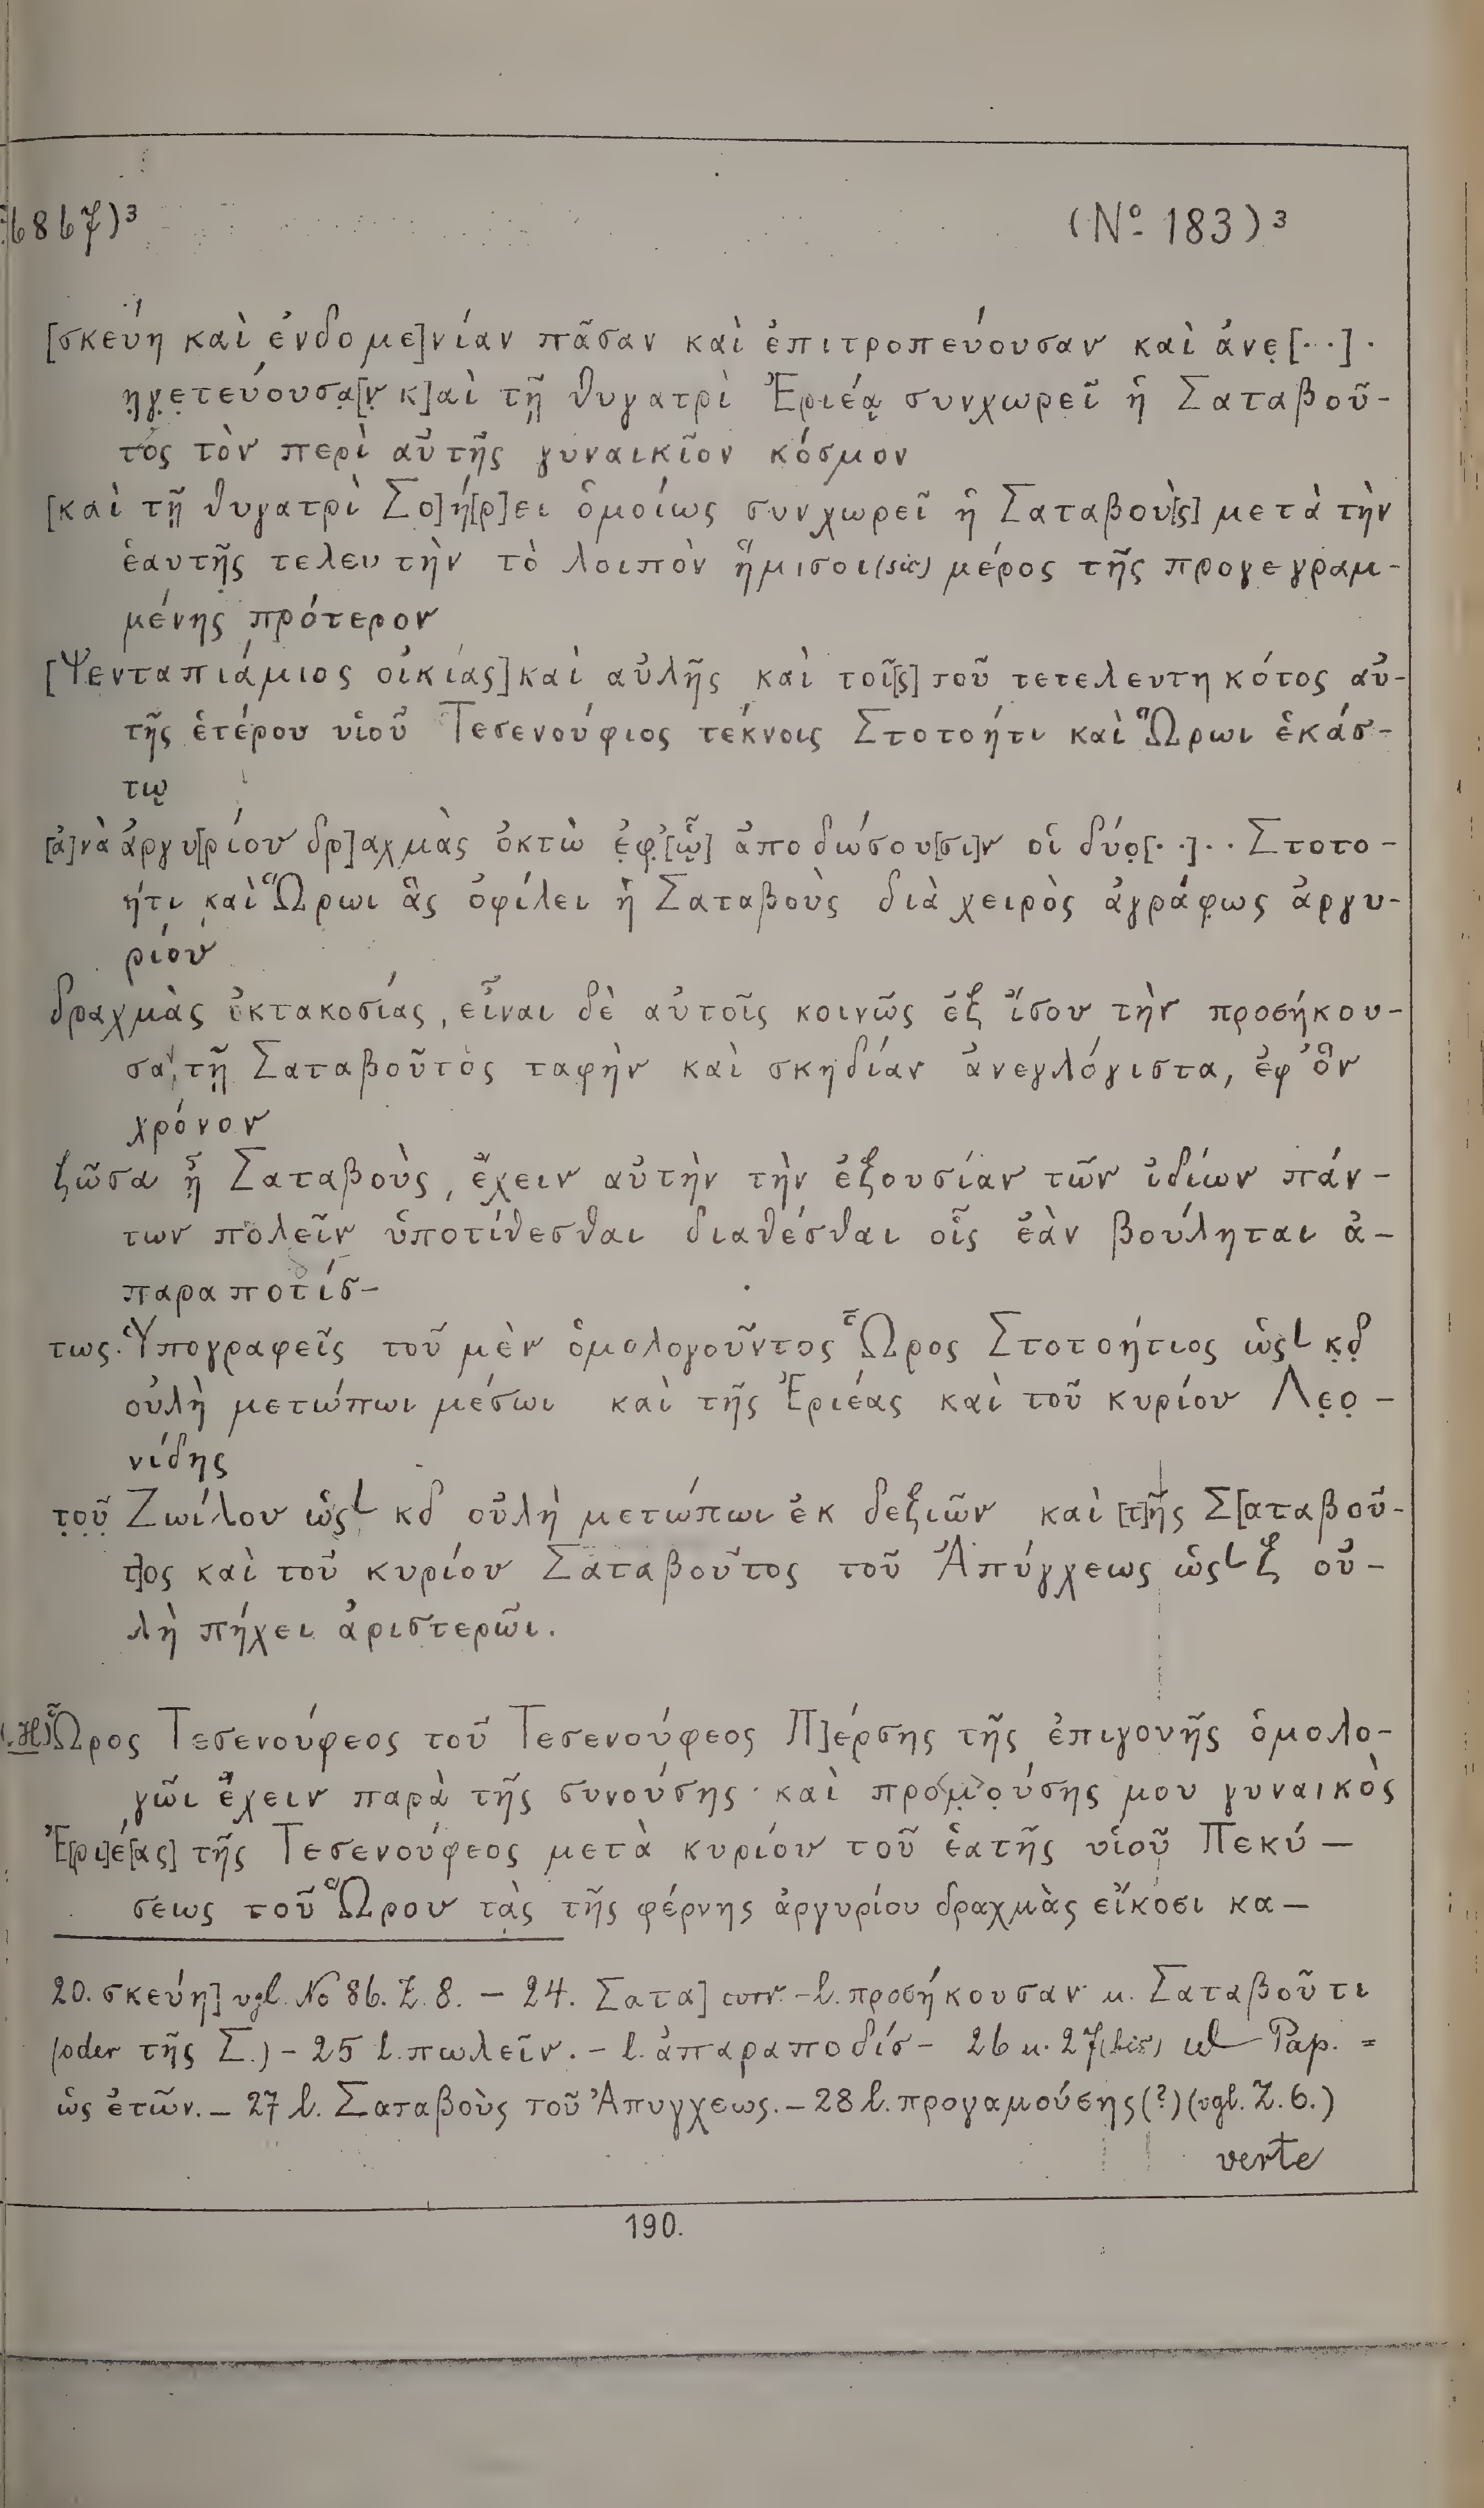 6867)³ (Nº 183)³
[σκεύη καὶ ἐνδομε]νίαν πᾶσαν καὶ ἐπιτροπεύουσαν καὶ ἀνε̣[··]·
η̣γ̣ε̣τεύουσα̣[ν̣ κ]αὶ τῇ θυγατρὶ Ἐριέᾳ συνχωρεῖ ἡ Σαταβοῦ-
τος τὸν περὶ αὐτῆς γυναικῖον κόσμον
[καὶ τῇ θυγατρὶ Σο]ή[ρ]ει ὁμοίως συνχωρεῖ ἡ Σαταβοὺ[ς] μετὰ τὴν
ἑαυτῆς τελευτὴν τὸ λοιπὸν ἥμισοι(sic) μέρος τῆς προγεγραμ-
μένης πρότερον
[Ψενταπιάμιος οἰκίας] καὶ αὐλῆς καὶ τοῖ[ς] τοῦ τετελευτηκότος αὐ-
τῆς ἑτέρου υἱοῦ Τεσενούφιος τέκνοις Στοτοήτι καὶ Ὥρωι ἑκάσ-
τῳ
[ἀ]νὰ ἀργυ[ρίου δρ]αχμὰς ὀκτὼ ἐ̣φ̣[ᾧ] ἀποδώσου[σι]ν οἱ δύο̣[··]·· Στοτο-
ήτι καὶ Ὥρωι ἃς ὀφίλει ἡ Σαταβοὺς διὰ χειρὸς ἀγράφως ἀργυ-
ρίου
δραχμὰς ὀκτακοσίας, εἶναι δὲ αὐτοῖς κοινῶς ἐξ ἴσου τὴν προσήκου-
σα τῇ Σαταβοῦτος ταφὴν καὶ σκηδίαν ἀνεγλόγιστα, ἐφ’ ὃν
χρόνον
ζῶσα ᾖ Σαταβοὺς, ἔχειν αὐτὴν τὴν ἐξουσίαν τῶν ἰδίων πάν-
των πολεῖν ὑποτίθεσθαι διαθέσθαι οἷς ἐὰν βούληται ἀ-
παραποτίσ-
τως. Ὑπογραφεῖς τοῦ μὲν ὁμολογοῦντος Ὧρος Στοτοήτιος ὡς L κ̣δ̣
οὐλὴ μετώπωι μέσωι καὶ τῆς Ἐριέας καὶ τοῦ κυρίου Λε̣ο̣-
νίδης
τ̣ο̣ῦ Ζωίλου ὡς L κδ οὐλὴ μετώπωι ἐκ δεξιῶν καὶ [τ]ῆς Σ[αταβοῦ-
τ]ος καὶ τοῦ κυρίου Σαταβοῦτος τοῦ Ἀπύγχεως ὡς L ξ οὐ-
λὴ πήχει ἀριστερῶι.
(.H) Ὧρος Τεσενούφεος τοῦ Τεσενούφεος Π]έρσης τῆς ἐπιγονῆς ὁμολο-
γῶι ἔχειν παρὰ τῆς συνούσης καὶ προμ̣ο̣ύσης μου γυναικὸς
Ἐ[ρι]έ[ας] τῆς Τεσενούφεος μετὰ κυρίου τοῦ ἑατῆς υἱοῦ Πεκύ-
σεως τοῦ Ὥρου τὰ̣ς τῆς φέρνης ἀργυρίου δραχμὰς εἴκοσι κα-
20. σκεύη] vgl. No 86. Z. 8. – 24. Σατα] corr. – l. προσήκουσαν u. Σαταβοῦτι
(oder τῆς Σ.) – 25 l. πωλεῖν. – l. ἀπαραποδίσ- 26 u. 27(bis) ωL Pap. =
ὡς ἐτῶν. – 27 l. Σαταβοὺς τοῦ Ἀπυγχεως. – 28 l. προγαμούσης(?) (vgl. Z. 6.)
verte
190.